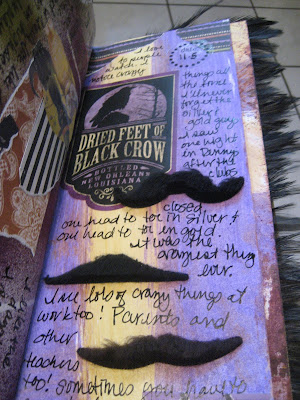 I love
to people
watch. I
notice crazy
11-5
things all
the time.
I'll never
forget the
silver &
gold guys
I saw
one night
in
after the
clubs
DRIED FEET OF
BLACK CROW
BOTTLED
NEW ORLEANS
LOUISIANA
closed.
one head to toe in silver &
one head to toe in gold.
It was the
craziest thing
ever.
I see lots of crazy things at
work too! Parents and
other
teachers
too! Sometimes you have to